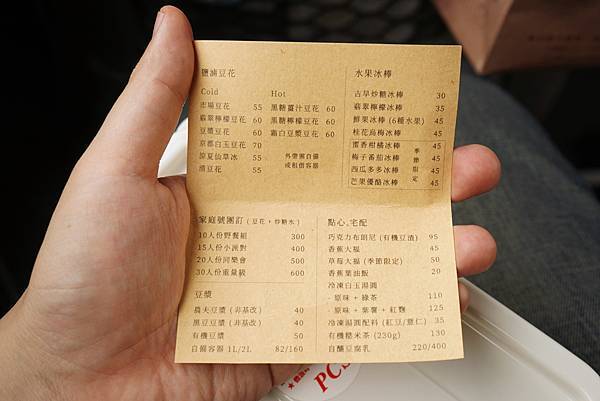 鹽滷豆花
Cold
市場豆花 55
翡翠檸檬豆花 60
豆漿豆花 60
京都白玉豆花 70
涼夏仙草冰 55
清豆花 55
Hot
黑糖薑汁豆花 60
黑糖檸檬豆花 60
霜白豆漿豆花 60
外帶需自備
或租借容器
水果冰棒
古早炒糖冰棒 30
翡翠檸檬冰棒 35
鮮果冰棒 (6種水果) 45
桂花烏梅冰棒 45
蜜香柑橘冰棒 45
梅子番茄冰棒 45
西瓜多多冰棒 45
芒果優酪冰棒 45
季節限定
家庭號團訂 (豆花+炒糖水)
10人份野餐組 300
15人份小派對 400
20人份同樂會 500
30人份重量級 600
豆漿
農夫豆漿 (非基改) 40
黑豆豆漿 (非基改) 40
有機豆漿 50
自備容器 1L/2L 82/160
點心。宅配
巧克力布朗尼 (有機豆渣) 95
香蕉大福 45
草莓大福 (季節限定) 50
香蕉葉油飯 20
冷凍白玉湯圓
· 原味 + 綠茶 110
· 原味 + 紫薯 + 紅麴 125
冷凍湯圓配料 (紅豆/薏仁) 35
有機糙米茶 (230g) 130
自釀豆腐乳 220/400